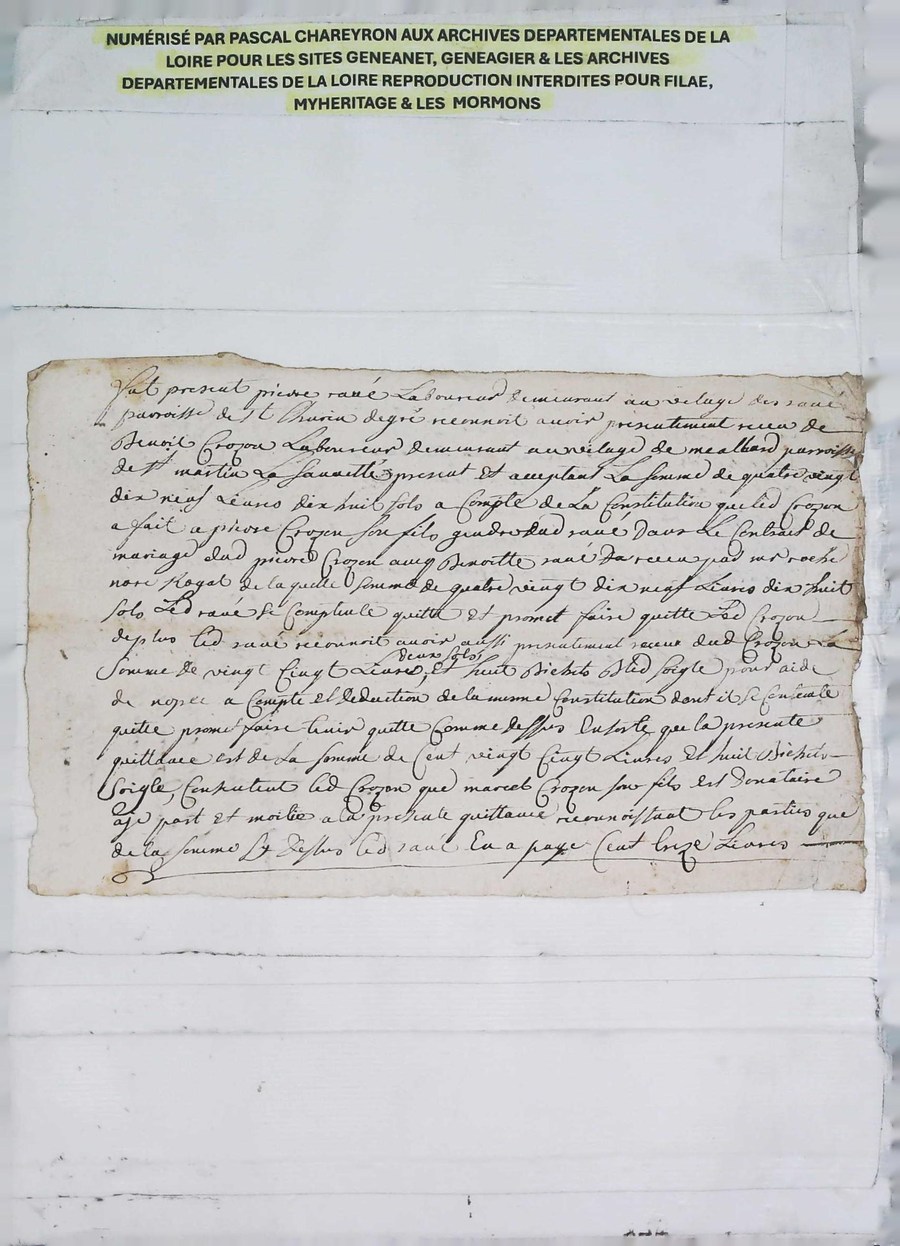 NUMÉRISÉ PAR PASCAL CHAREYRON AUX ARCHIVES DEPARTEMENTALES DE LA
LOIRE POUR LES SITES GENEANET, GENEAGIER & LES ARCHIVES
DEPARTEMENTALES DE LA LOIRE REPRODUCTION INTERDITES POUR FILAE,
MYHERITAGE & LES MORMONS
fut present pierre ravé Laboureur demeurant au vilage des ravé
parroisse de St Thurin degré reconnoit avoir presentement receu de
Benoit Crozon Laboureur demeurant au vilage de mealhard parroisse
de St martin La Sauveté present et acceptant La somme de quatre vingt
dix neuf Livres dix huit sols a Compte de La Constitution que led Crozon
a fait a pierre Crozon son fils gendre dud ravé Dans Le Contrait de
mariage dud pierre Crozon avec Benoitte ravé receu par me roche
nore Royal de laquelle somme de quatre vingt dix neuf Livres dix huit
sols Led ravé se Contente quitte et promet faire quitte Led Crozon
de plus led ravé reconnoit avoir aussi presentement receu dud Crozon La
deux sols
Somme de vingt Cinq Livres et huit Bichets Bled soigle pour aide
de nopce a Compte et deduction de la meme Constitution dont il se Contente
quitte promet faire tenir quitte Comme dessus Ensorte que la presente
quittance est de La somme de Cent vingt Cinq Livres et huit Bichets
Soigle, Consentent led Crozon que marcel Crozon son fils et Donataire
aye part et moitié a la presente quittance reconnoissant les parties que
de la somme Cy dessus led ravé En a paye Cent treize Livres